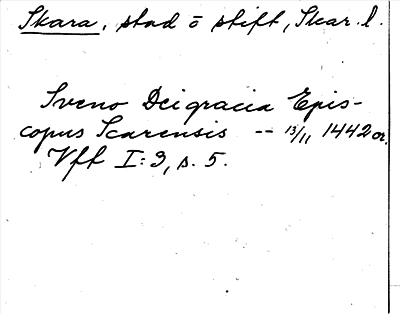 Skara, stad o stift, Skar. l.
Sveno Dei gracia Epis-
copus Scarensis -- 13/11 1442 or.
Vff I:3, s. 5.